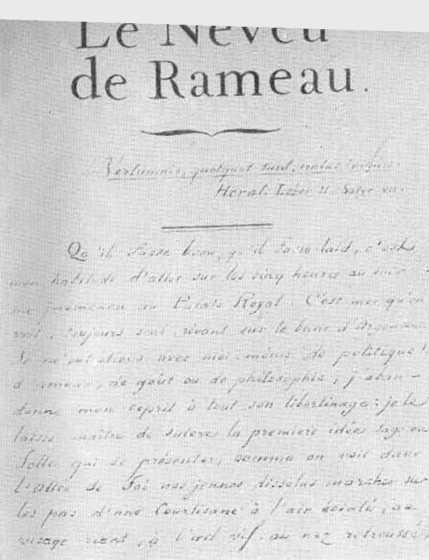 Le Neveu
de Rameau.
Vertumnis, quotquot sunt, natus iniquis.
Horat. Lib. II. Satyr. VII.
Qu'il fasse beau, qu'il fasse laid, c'est
mon habitude d'aller sur les cinq heures du soir
me promener au Palais Royal. C'est moi qu'on
voit, toujours seul, rêvant sur le banc d'Argenson.
Je m'entretiens avec moi-même de politique,
d'amour, de goût ou de philosophie; j'aban-
donne mon esprit à tout son libertinage: je le
laisse maître de suivre la première idée sage ou
folle qui se présente, comme on voit dans
l'allée de Foi nos jeunes dissolus marcher sur
les pas d'une Courtisane à l'air éventé, au
visage riant, à l'œil vif, au nez retroussé,